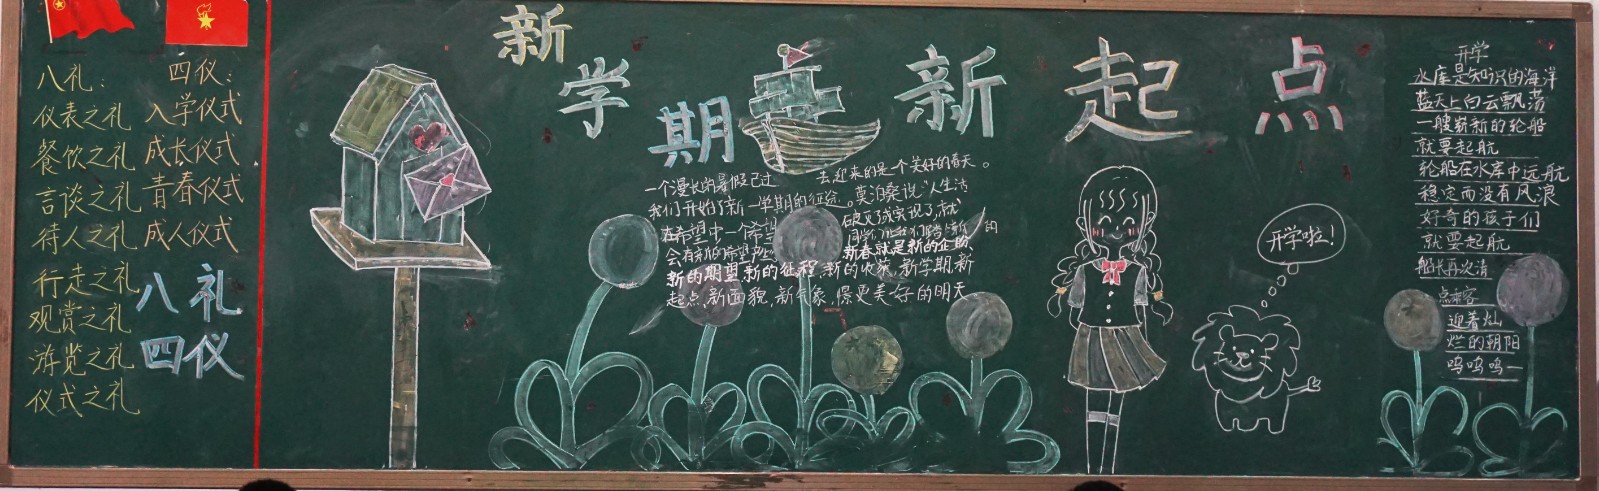 八礼:
仪表之礼
餐饮之礼
言谈之礼
待人之礼
行走之礼
观赏之礼
游览之礼
仪式之礼
四仪:
入学仪式
成长仪式
青春仪式
成人仪式
八礼
四仪
新学期 新起点
一个漫长的暑假已过 去迎来的是一个美好的春天。
我们开始了新一学期的征途。莫泊桑说:人生活
在希望中一个希望 破灭了或实现了,就
会有新的希望产生
新春就是新的企盼
新的期望,新的征程,新的收获,新学期,新
起点,新面貌,新气象,保更美好的明天
开学啦!
开学
水库是知识的海洋
蓝天上白云飘荡
一艘崭新的轮船
就要起航
轮船在水库中远航
稳定而没有风浪
好奇的孩子们
就要起航
船长再次清
点乘客
迎着灿
烂的朝阳
呜呜呜一